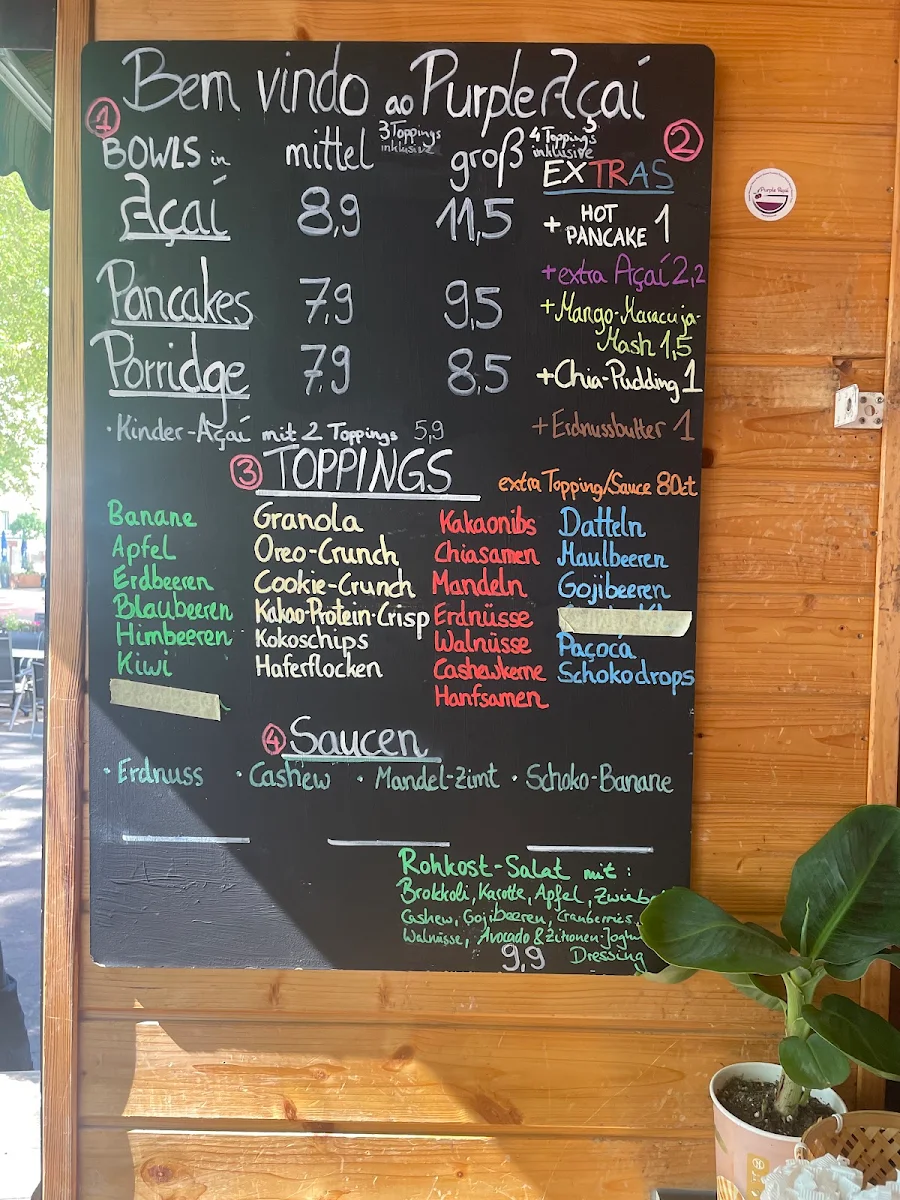 Bem vindo ao Purple Açaí
① ②
BOWLS in mittel 3 Toppings inklusive groß 4 Toppings inklusive
EXTRAS
Açaí 8,9 11,5
+ HOT PANCAKE 1
+extra Açaí 2,2
Pancakes 7,9 9,5
+Mango-Maracuja-
Mash 1,5
Porridge 7,9 8,5
+Chia-Pudding 1
·Kinder-Açaí mit 2 Toppings 5,9
+Erdnussbutter 1
③ TOPPINGS
extra Topping/Sauce 80ct
Banane
Apfel
Erdbeeren
Blaubeeren
Himbeeren
Kiwi
Granola
Oreo-Crunch
Cookie-Crunch
Kakao-Protein-Crisp
Kokoschips
Haferflocken
Kakaonibs
Chiasamen
Mandeln
Erdnüsse
Walnüsse
Cashewkerne
Hanfsamen
Datteln
Maulbeeren
Gojibeeren
Paçoca
Schokodrops
④ Saucen
· Erdnuss · Cashew · Mandel-Zimt · Schoko-Banane
Rohkost-Salat mit :
Brokkoli, Karotte, Apfel,
Cashew, Gojibeeren, Cranberries,
Walnüsse, Avocado & Zitronen-
Dressing
9,9
Purple Açaí